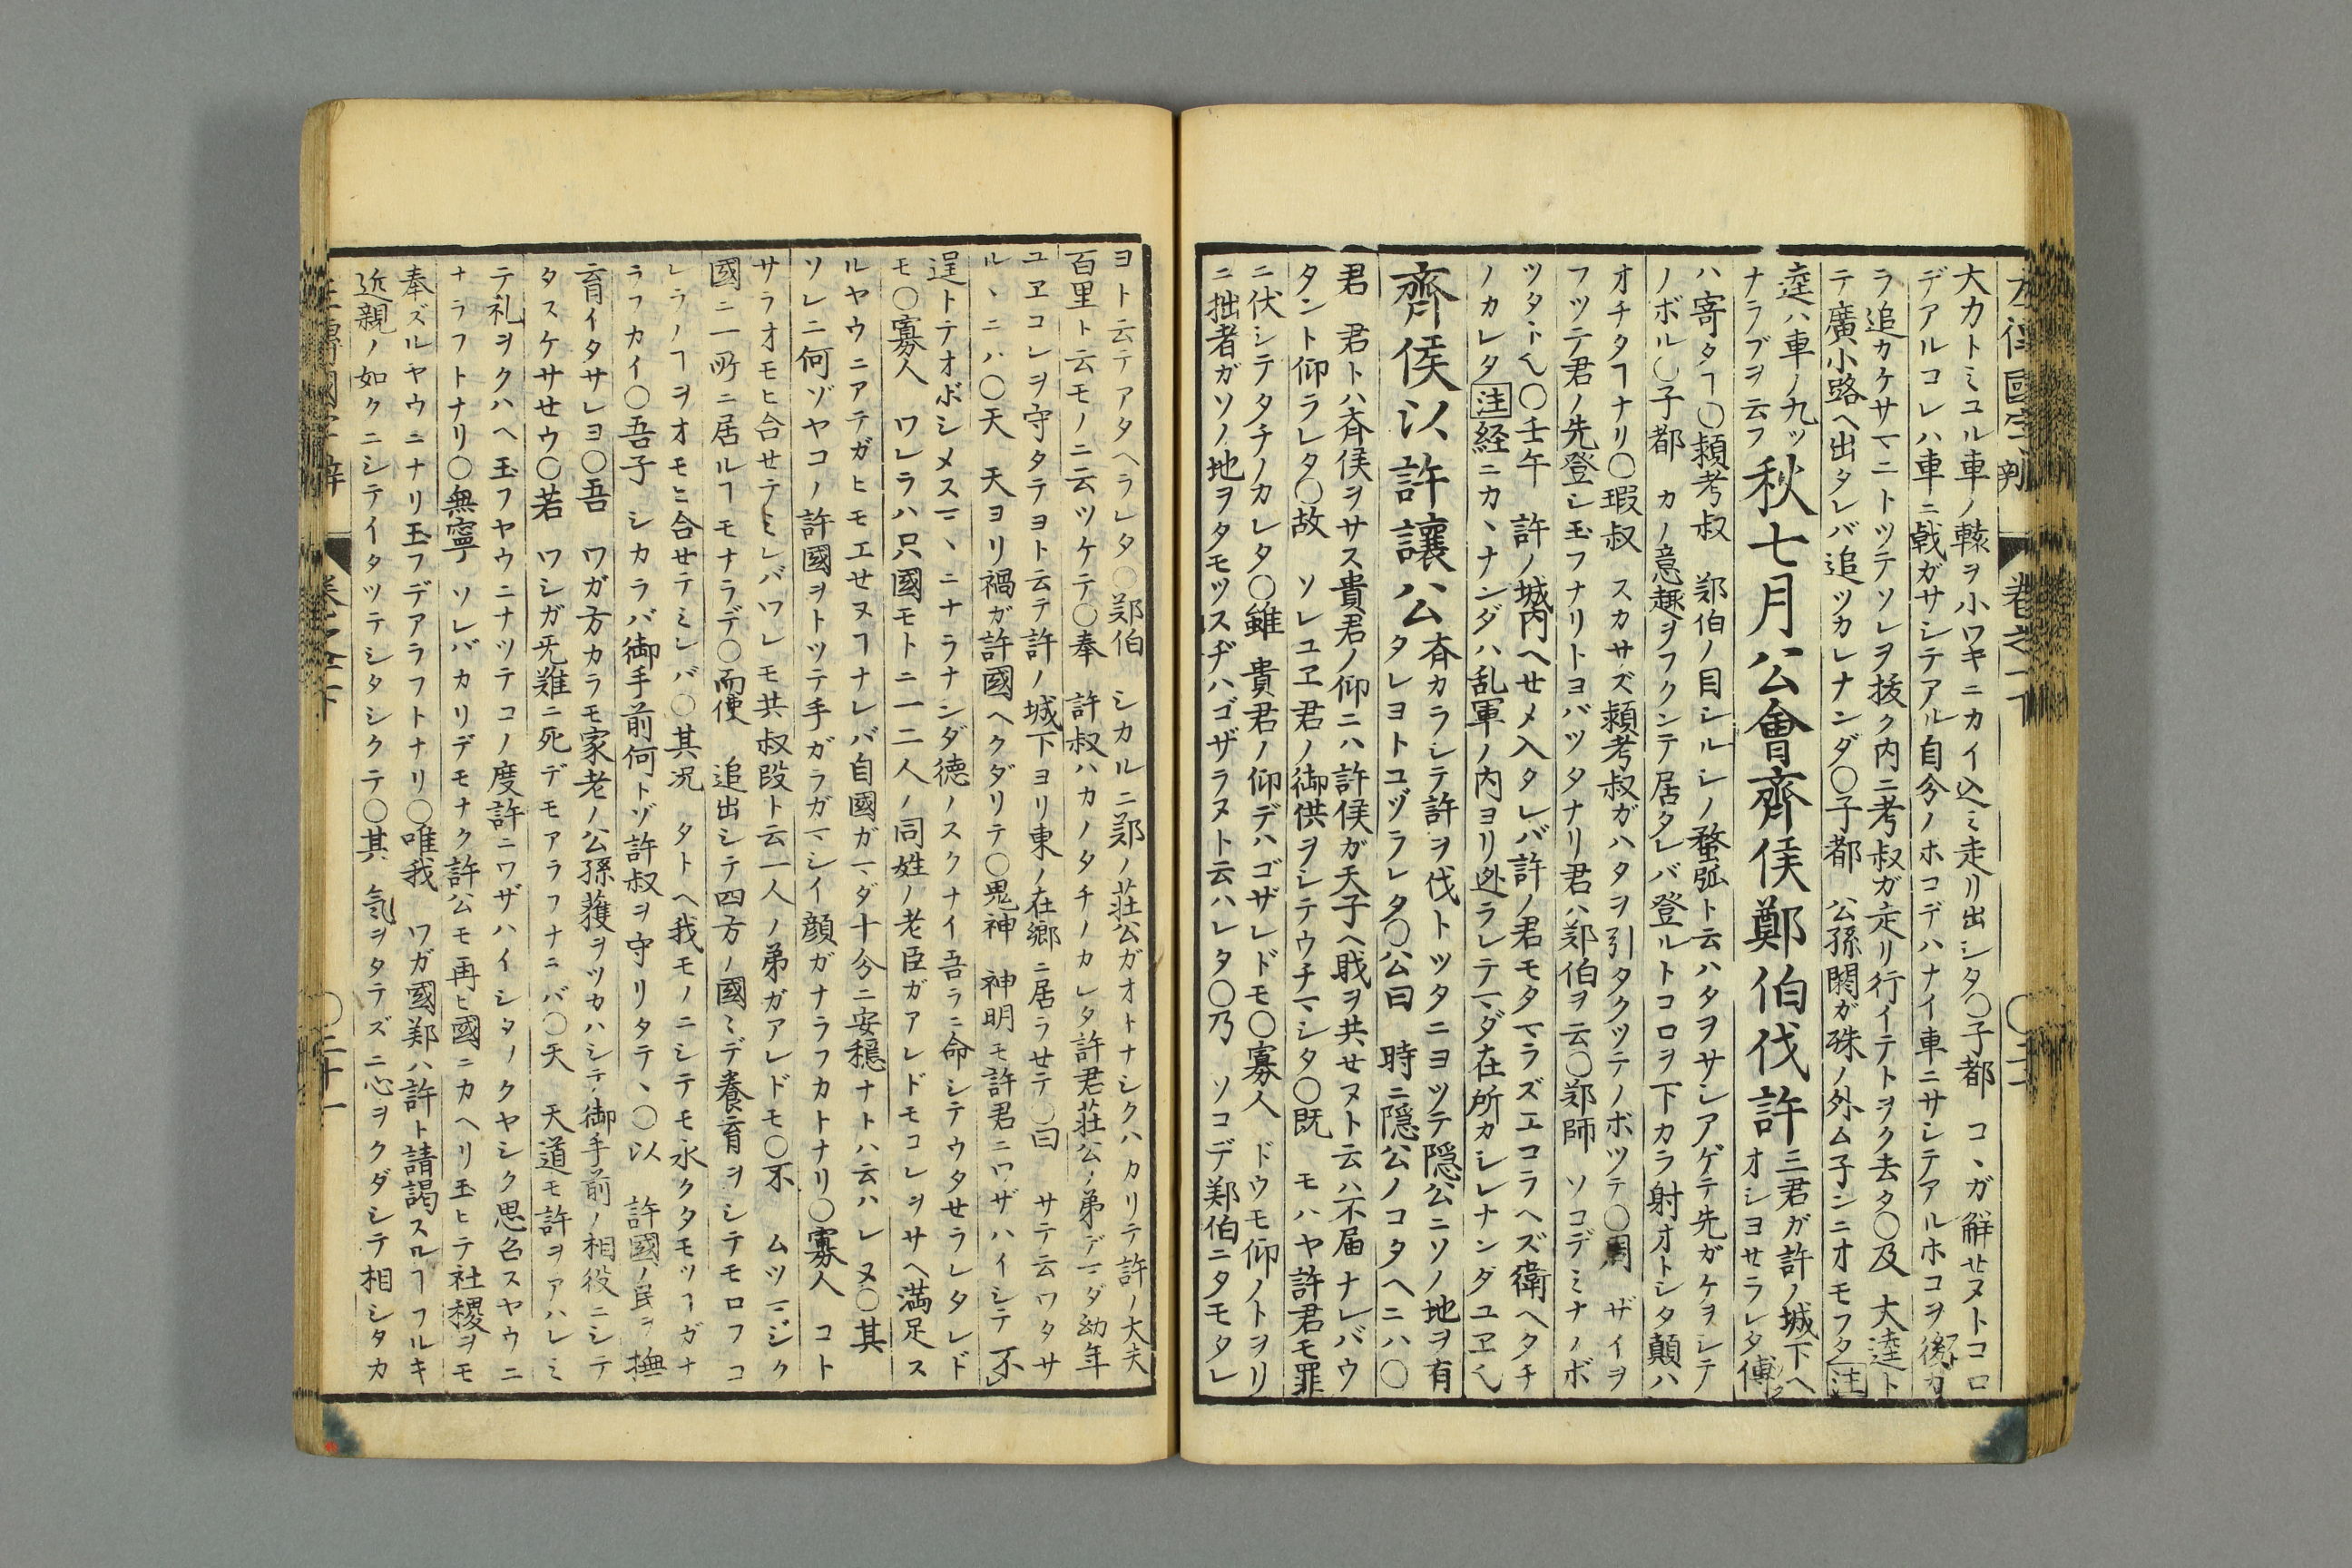 左傳國字辨 卷之一下
大力トミユル車ノ轅ヲ小ワキニカイ込ミ走リ出シタ〇子都 コヽガ解せヌトコロ
デアルコレハ車ニ戟ガサシテアル自分ノホコデハナイ車ニサシテアルホコヲ後カ
ラ追カケサマニトツテソレヲ抜ク内ニ考叔ガ走リ行イテトヲク去タ〇及 大逵ト
テ廣小路ヘ出タレバ追ツカレナンダ〇子都 公孫閼ガ殊ノ外ム子ンニオモフタ注
逵ハ車ノ九ッ三君ガ許ノ城下ヘ
ナラブヲ云フ秋七月公會齊侯鄭伯伐許オシヨせラレタ傅
ハ寄タヿ〇頴考叔 郑伯ノ目シルシノ蝥弧ト云ハタヲサシアゲテ先ガケヲシテ
ノボル〇子都 カノ意趣ヲフクンテ居タレバ登ルトコロヲ下カラ射オトシタ顛ハ
オチタヿナリ〇瑕叔 スカサズ頴考叔ガハタヲ引タクツテノボツテ〇周 ザイヲ
フツテ君ノ先登シ玉フナリトヨバツタナリ君ハ郑伯ヲ云〇郑師 ソコデミナノボ
ツタト也〇壬午 許ノ城内ヘせメ入タレバ許ノ君モタマラズエコラヘズ衛ヘタチ
ノカレタ注経ニカヽナンダハ乱軍ノ内ヨリ迯ラレテマダ在所カシレナンダユヱ也
齊侯以許讓公斉カラシテ許ヲ伐トツタニヨツテ隠公ニソノ地ヲ有
タレヨトユヅラレタ〇公曰 時ニ隠公ノコタヘニハ〇
君 君トハ斉侯ヲサス貴君ノ仰ニハ許侯ガ天子ヘ貮ヲ共せヌト云ハ不届ナレバウ
タント仰ラレタ〇故 ソレユヱ君ノ御供ヲシテウチマシタ〇既 モハヤ許君モ罪
ニ伏シテタチノカレタ〇雖 貴君ノ仰デハゴザレドモ〇寡人 ドウモ仰ノトヲリ
ニ拙者ガソノ地ヲタモツスヂハゴザラヌト云ハレタ〇乃 ソコデ郑伯ニタモタレ
ヨト云テアタヘラレタ〇郑伯 シカルニ郑ノ荘公ガオトナシクハカリテ許ノ大夫
百里ト云モノニ云ツケテ〇奉 許叔ハカノタチノカレタ許君荘公ノ弟デマダ幼年
ユヱコレヲ守タテヨト云テ許ノ城下ヨリ東ノ在郷ニ居ラせテ〇曰 サテ云ワタサ
ルヽニハ〇天 天ヨリ禍ガ許國ヘクダリテ〇鬼神 神明モ許君ニワザハイシテ不
逞トテオボシメスマヽニナラナンダ徳ノスクナイ吾ラニ命シテウタせラレタレド
モ〇寡人 ワレラハ只國モトニ一二人ノ同姓ノ老臣ガアレドモコレヲサヘ満足ス
ルヤウニアテガヒモエせヌヿナレバ自國ガマダ十分ニ安穏ナトハ云ハレヌ〇其
ソレニ何ゾヤコノ許國ヲトツテ手ガラガマシイ顔ガナラフカトナリ〇寡人 コト
サラオモヒ合せテミレバワレモ共叔段ト云一人ノ弟ガアレドモ〇不 ムツマジク
國ニ一所ニ居ルヿモナラデ〇而使 追出シテ四方ノ國ミデ養育ヲシテモロフコ
レラノヿヲオモヒ合せテミレバ〇其況 タトヘ我モノニシテモ永クタモツヿガナ
ラフカイ〇吾子 シカラバ御手前何トゾ許叔ヲ守リタテヽ〇以 許國ノ民ヲ撫
育イタサレヨ〇吾 ワガ方カラモ家老ノ公孫獲ヲツカハシテ御手前ノ相役ニシテ
タスケサせウ〇若 ワシガ死難ニ死デモアラフナニバ〇天 天道モ許ヲアハレミ
テ礼ヲクハヘ玉フヤウニナツテコノ度許ニワザハイシタノクヤシク思召スヤウニ
ナラフトナリ〇無寧 ソレバカリデモナク許公モ再ヒ國ニカヘリ玉ヒテ社稷ヲモ
奉ズルヤウニナリ玉フデアラフトナリ〇唯我 ワガ國郑ハ許ト請謁スルヿフルキ
近親ノ如クニシテイタツテシタシクテ〇其 気ヲタテズニ心ヲクダシテ相シタカ